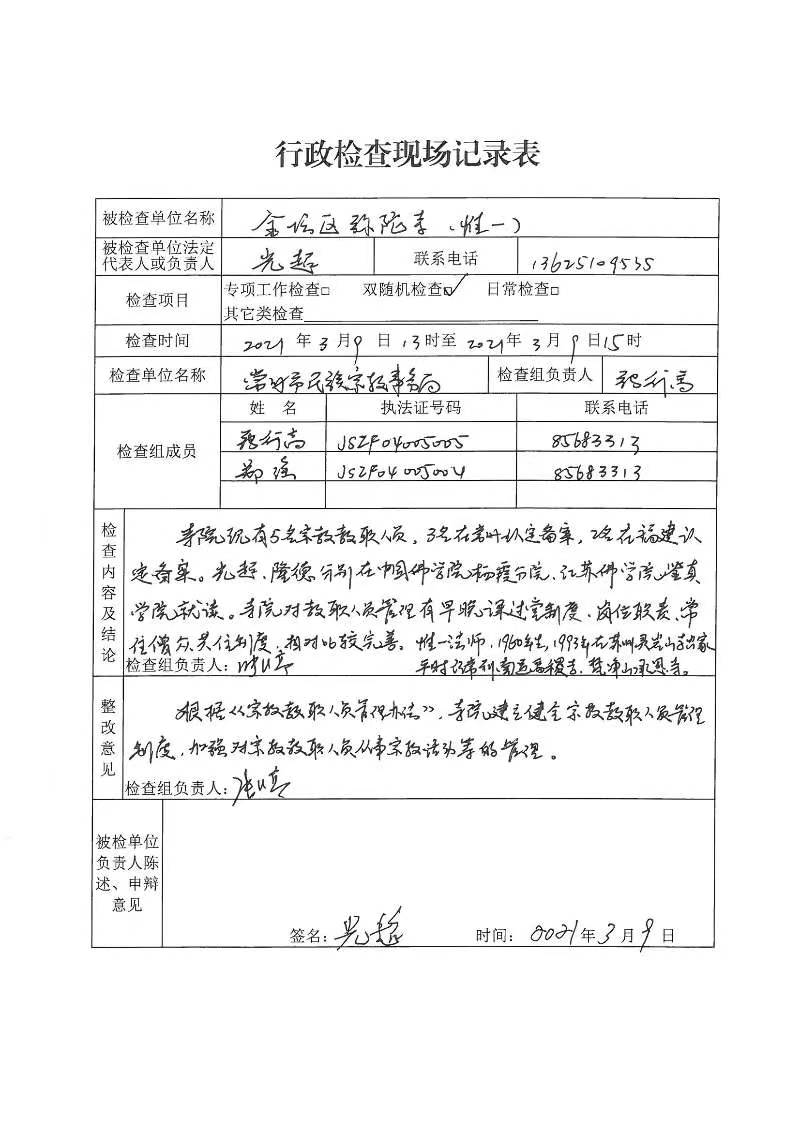 行政检查现场记录表
被检查单位名称 金坛区弥陀寺（惟一）
被检查单位法定代表人或负责人 光超 联系电话 13625109535
检查项目 专项工作检查□ 双随机检查☑ 日常检查□
其它类检查
检查时间 2021年3月9日13时至2021年3月9日15时
检查单位名称 常州市民族宗教事务局 检查组负责人
检查组成员 姓 名 执法证号码 联系电话
JSZF04005005 85683313
郑瑶 JSZF04005004 85683313
检查内容及结论
寺院现有5名宗教教职人员，3名在常州认定备案，2名在福建认
定备案。光超、隆德分别在中国佛学院杨疫分院、江苏佛学院鉴真
学院就读。寺院对教职人员管理有早晚课过堂制度、岗位职责、常
住僧众共住制度，相对比较完善。惟一法师，1960年生，1993年在苏州灵岩山寺出家
平时
检查组负责人：
整改意见
根据《宗教教职人员管理办法》，寺院建立健全宗教教职人员管理
制度，加强对宗教教职人员从事宗教活动等的管理。
检查组负责人：
被检单位负责人陈述、申辩意见
签名：光超 时间：2021年3月9日